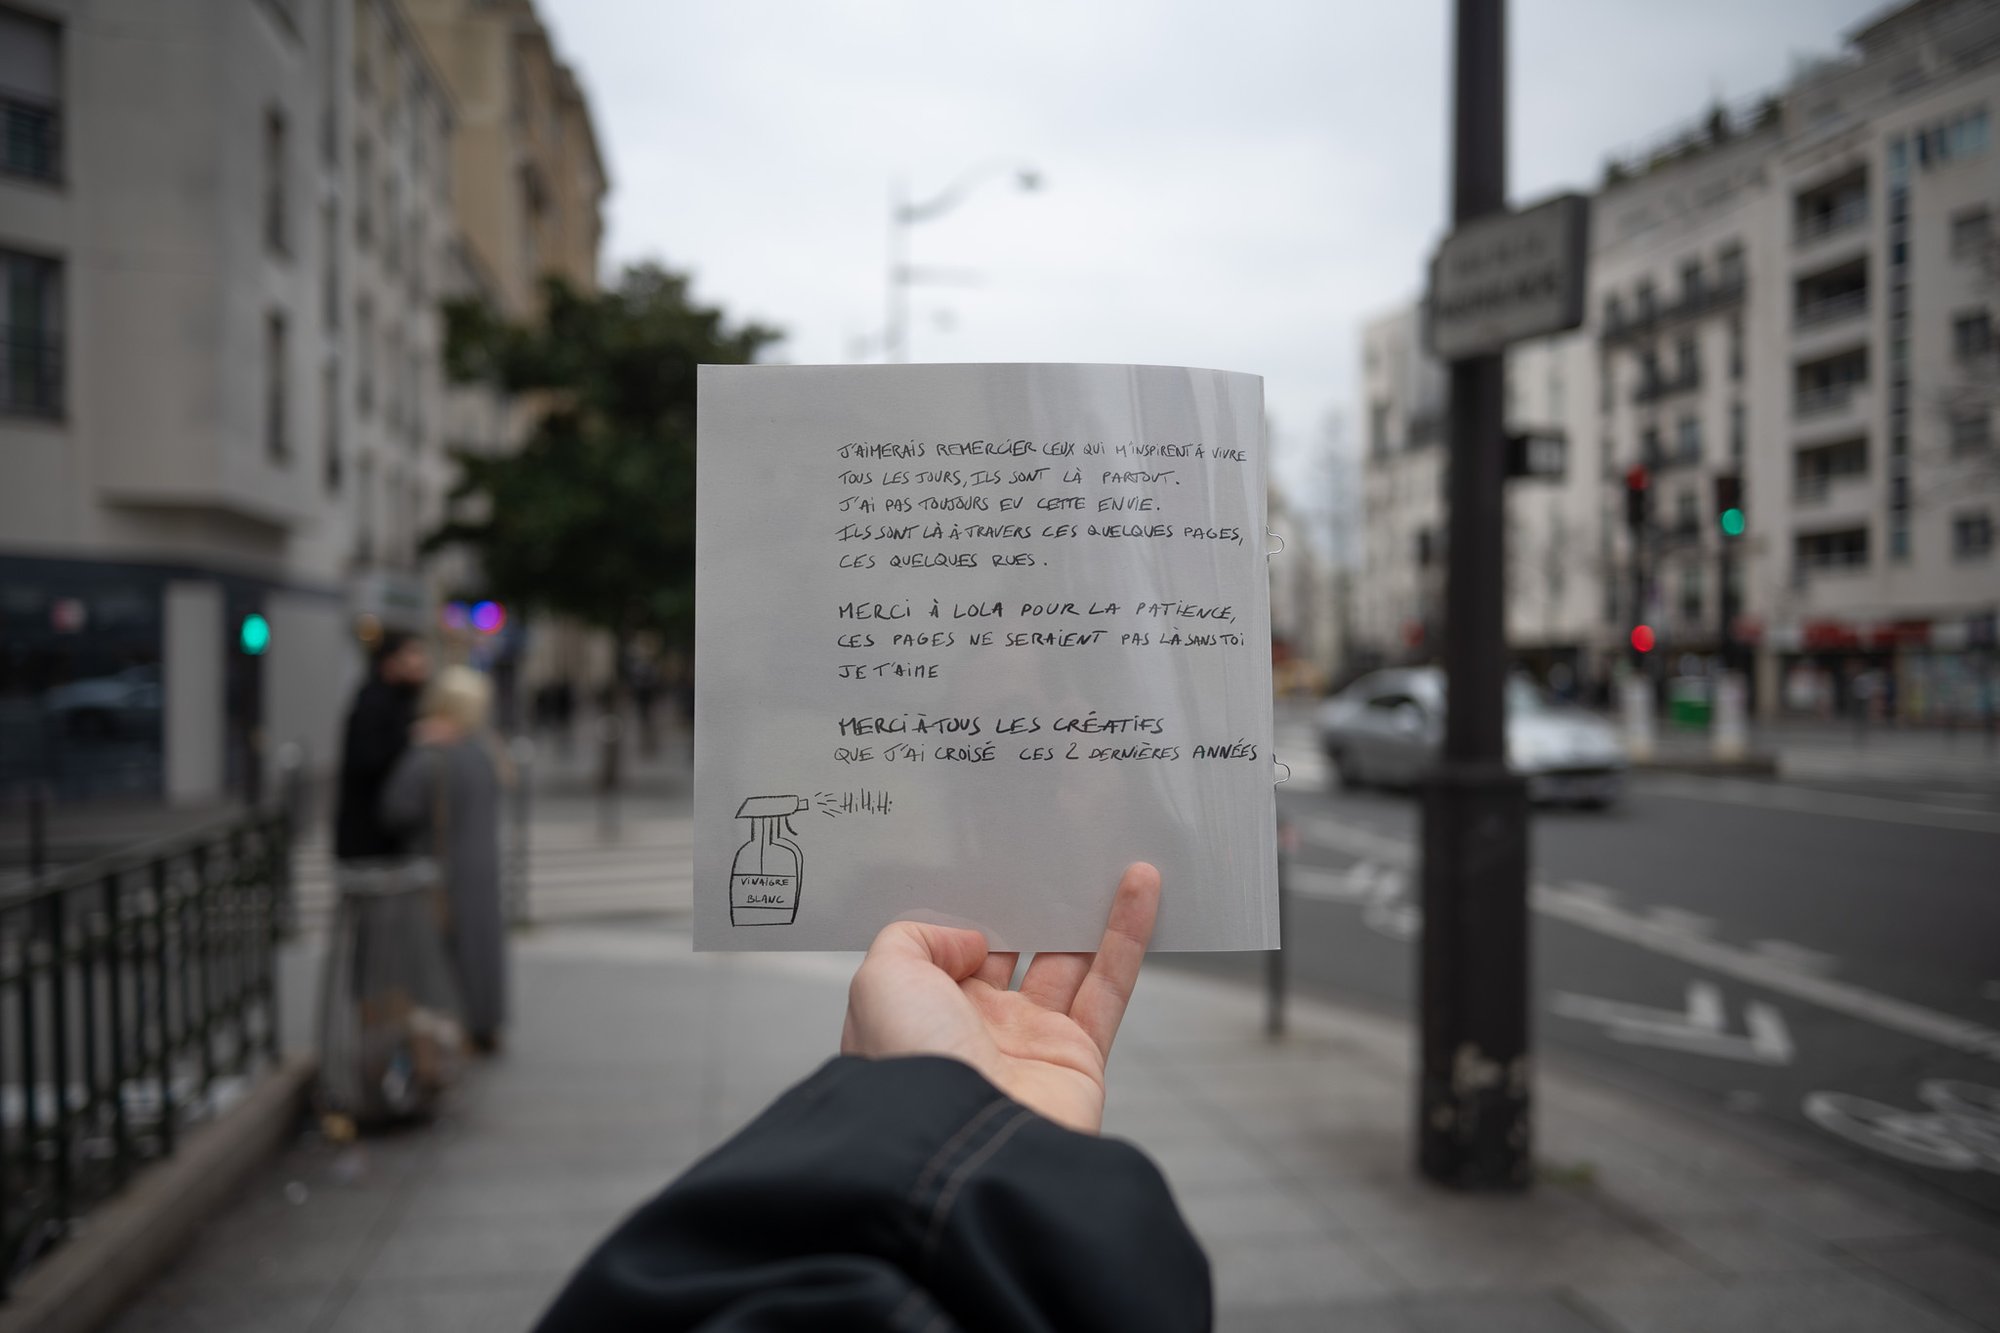 J'AIMERAIS REMERCIER CEUX QUI M'INSPIRENT À VIVRE
TOUS LES JOURS, ILS SONT LÀ PARTOUT.
J'AI PAS TOUJOURS EU CETTE ENVIE.
ILS SONT LÀ À TRAVERS CES QUELQUES PAGES,
CES QUELQUES RUES.
MERCI À LOLA POUR LA PATIENCE,
CES PAGES NE SERAIENT PAS LÀ SANS TOI
JE T'AIME
MERCI À TOUS LES CRÉATIFS
QUE J'AI CROISÉ CES 2 DERNIÈRES ANNÉES
VINAIGRE
BLANC